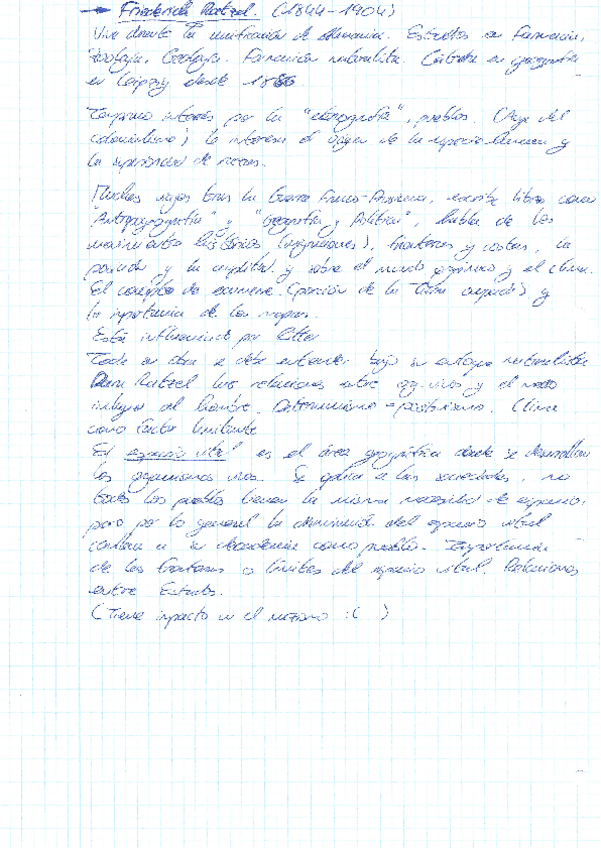 → Friederich Ratzel. (1844-1904)
Vive durante la unificación de Alemania. Estudios en Farmacia,
Zoología, Geología. Formación naturalista. Cátedra en geografía
en Leipzig desde 18
Temprano interés por la "etnografía", pueblos. (Auge del
colonialismo) le interesa el origen de la especie humana y
la superioridad de razas.
Muchos viajes tras la Guerra Franco-Prusiana, escribe libros como
"Antropogeografía" y "Geografía y Política", habla de los
movimientos históricos (migraciones), fronteras y costas, la
posición y la amplitud y sobre el mundo orgánico y el clima.
El concepto de ecumene (porción de la Tierra ocupada) y
la importancia de los mapas.
Está influenciado por Ritter
Toda su obra se debe entender bajo su enfoque naturalista
Para Ratzel las relaciones entre org. vivos y el medio
incluyen al hombre. Determinismo - positivismo. Clima
como factor limitante
El espacio vital es el área geográfica donde se desarrollan
los organismos vivos. Se aplica a las sociedades, no
todos los pueblos tienen la misma necesidad de espacio,
pero por lo general la disminución del espacio vital
conlleva a su decadencia como pueblo. Importancia
de las fronteras o límites del espacio vital. Relaciones
entre Estados.
(Tiene impacto en el nazismo :( )